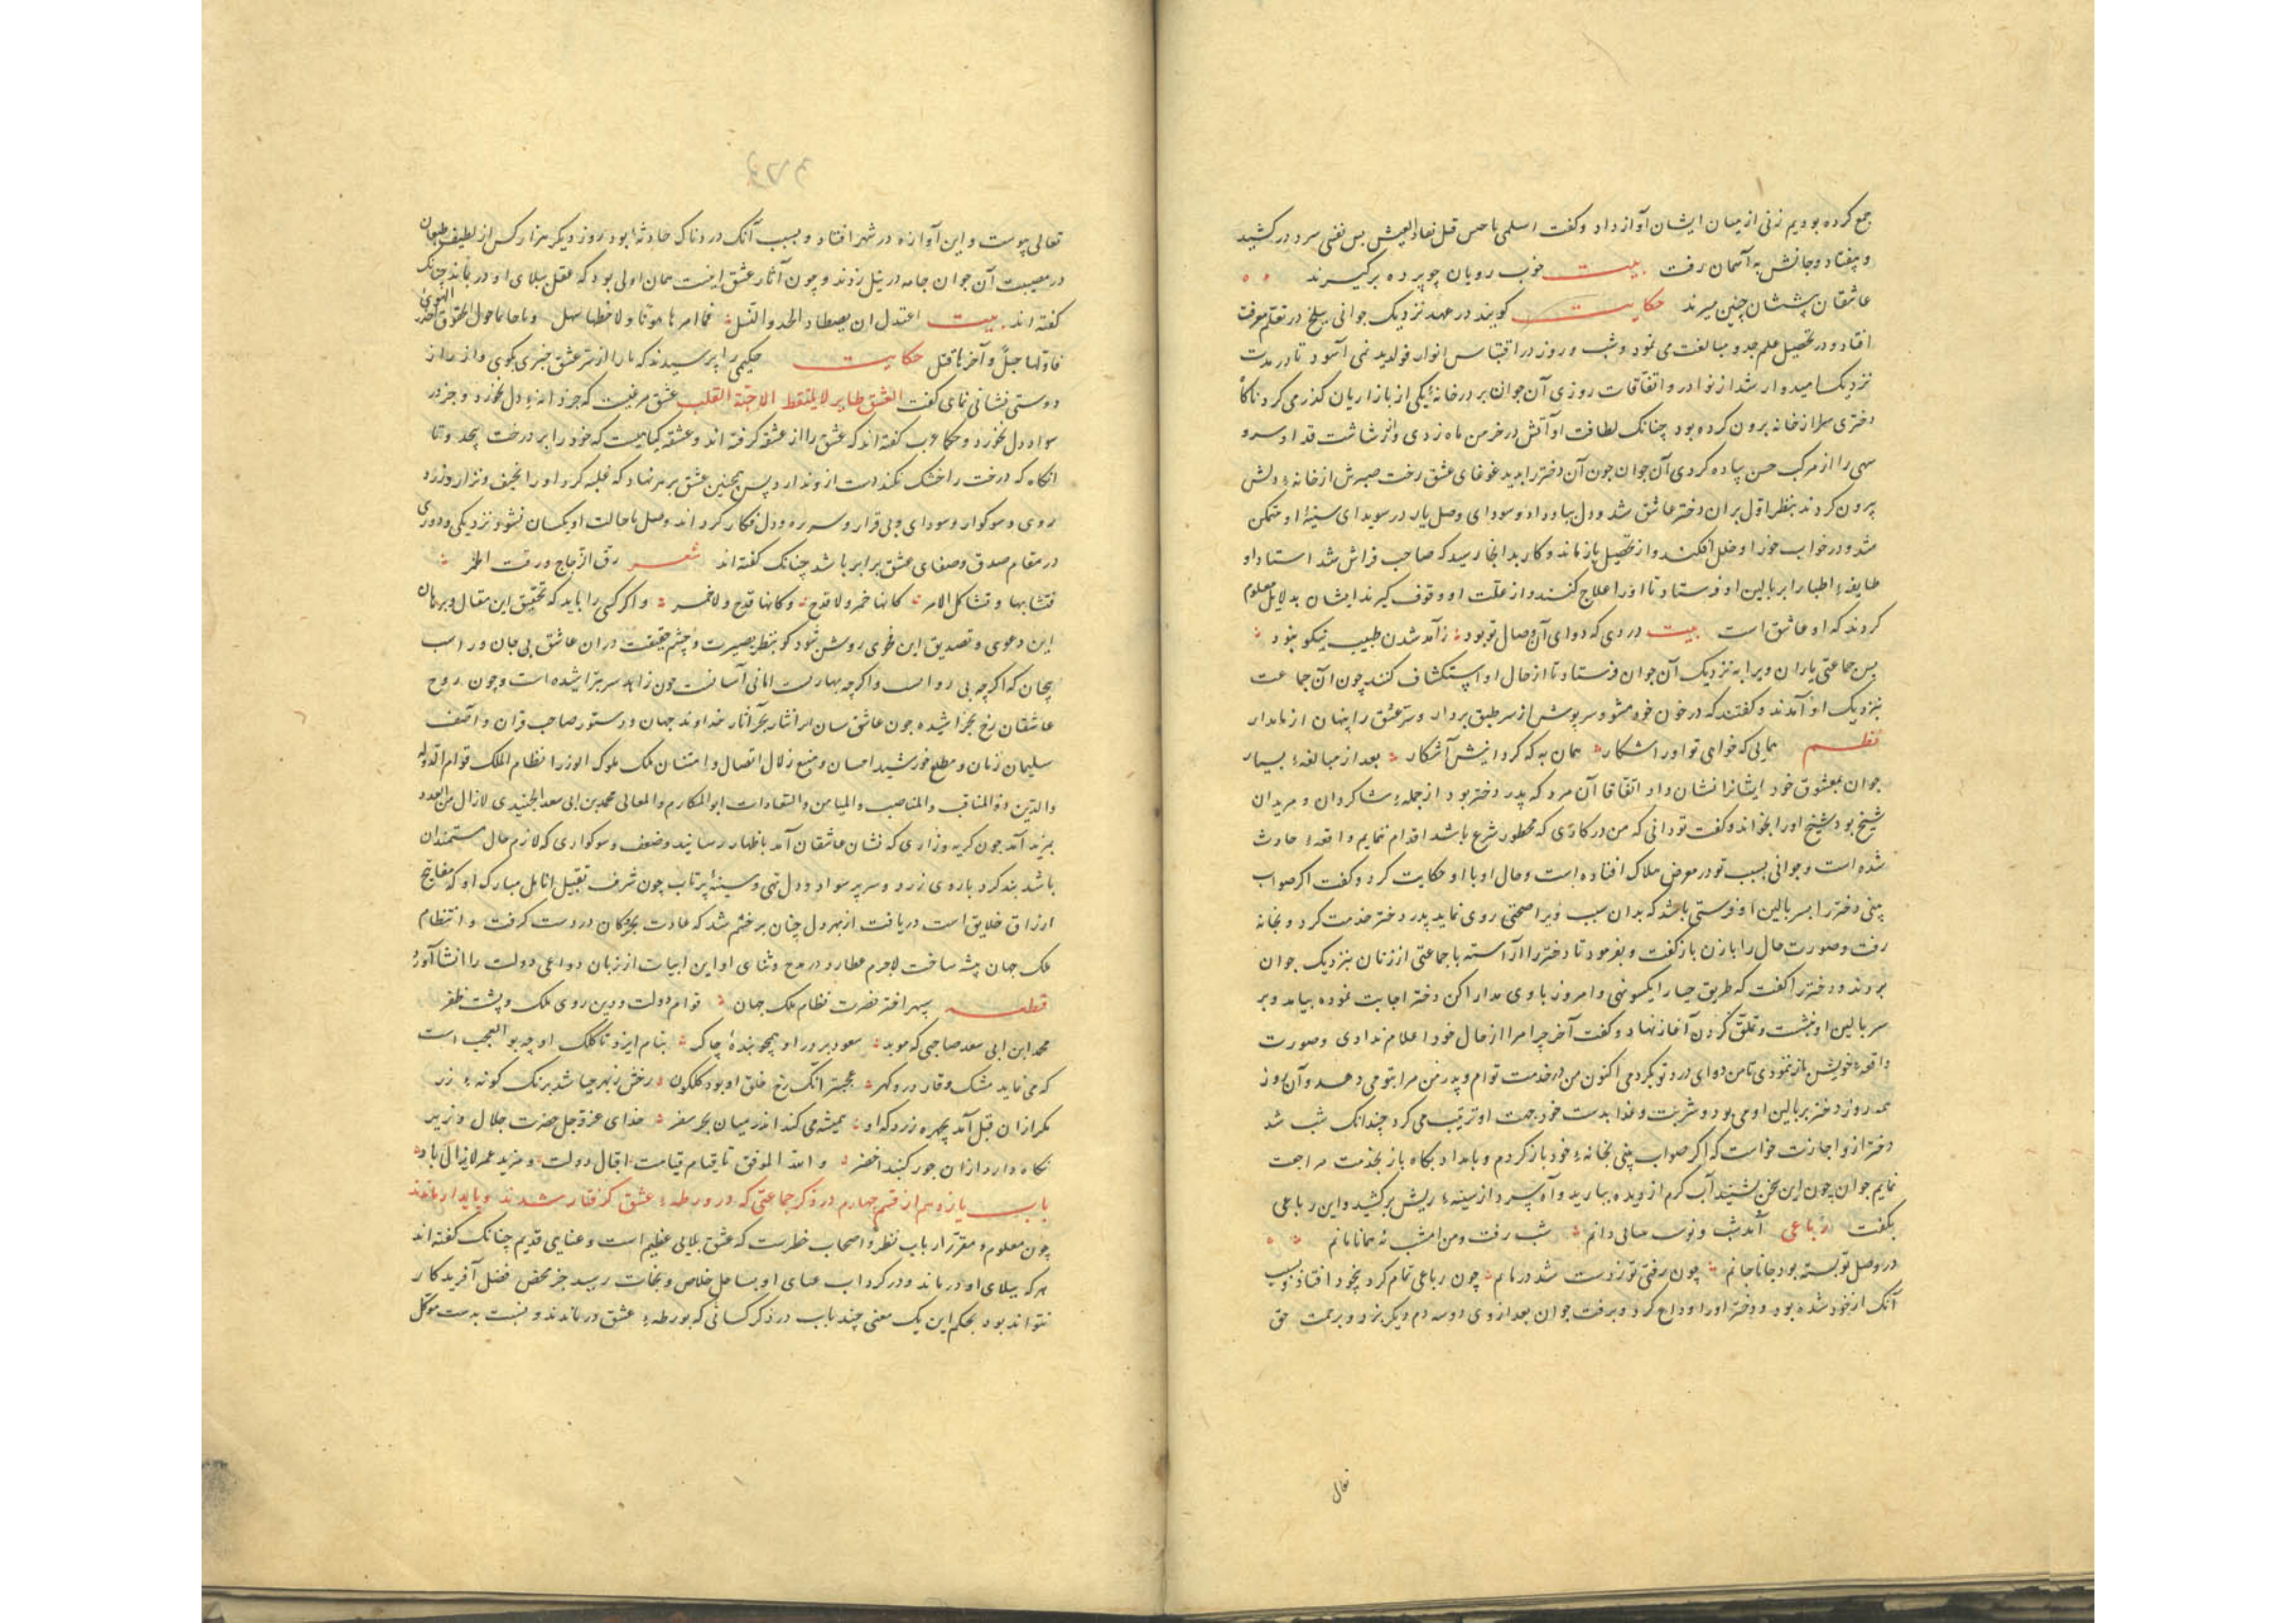 جمع کرده بودیم زنی از میان ایشان آواز داد و کفت اسلمی یا حس قبل نفاد العیش بس نفسی سرد در کشید
و بیفتاد و جانش به آسمان رفت بیت خوب رویان چو پرده برکیرند
عاشقان پیششان چنین میرند حکایت کویند در عهد نزدیک جوانی ببلخ در تعلم معرفت
افتاد و در تحصیل علم جد و مبالغت می نمود و شب و روز در اقتباس انوار فواید نمی آسود تا در مدت
نزدیک امیدوار شد از نوادر و اتفاقات روزی آن جوان بر در خانهٔ یکی از بازاریان کذر می کرد ناکاه
دختری سر از خانه برون کرده بود چنانک لطافت او آتش در خرمن ماه زدی و از شاشت قد او سرو
سهی را از مرکب حسن پیاده کردی آن جوان چون آن دختر را بدید غوغای عشق رخت صبرش از خانهٔ دلش
بیرون کردند بنظر اول بران دختر عاشق شد و دل بباد داد و سودای وصل یار در سویدای سینهٔ او متمکن
شد و در خواب خور او خلل افکند و از تحصیل باز ماند و کار بدانجا رسید که صاحب فراش شد استاد او
طایفهٔ اطبا را بر بالین او فرستاد تا او را علاج کنند و از علت او وقوف کیرند ایشان بدلایل معلوم
کردند که او عاشق است بیت دردی که دوای آن وصال تو بود زآمد شدن طبیب نیکو نبود
پس جماعتی یاران ویرا به نزدیک آن جوان فرستاد تا از حال او استکشاف کنند چون آن جماعت
بنزدیک او آمدند و کفتند که در خون خود مشو و سرپوش از سر طبق بردار و سر عشق را پنهان از ما مدار
نظم همایی که خواهی تو او را شکار همان به که کردانیش آشکار بعد از مبالغهٔ بسیار
جوان بمعشوق خود ایشانرا نشان داد اتفاقا آن مرد که پدر دختر بود از جملهٔ شاکردان و مریدان
شیخ بود شیخ او را بخواند و کفت تو دانی که من در کاری که محظور شرع باشد اقدام ننمایم واقعهٔ حادث
شده است و جوانی بسبب تو در معرض هلاک افتاده است و حال او با او حکایت کرد و کفت اکر صواب
بینی دختر را بسر بالین او فرستی باشد که بدان سبب ویرا صحتی روی نماید پدر دختر خدمت کرد و بخانه
رفت و صورت حال را با زن باز کفت و بفرمود تا دختر را آراسته با جماعتی از زنان بنزدیک جوان
بردند و دختر را کفت که طریق حیا را یکسو نهی و امروز با وی مدارا کن دختر اجابت نموده بیامد و بر
سر بالین او بنشست و تملق کردن آغاز نهاد و کفت آخر چرا مرا از حال خود اعلام ندادی و صورت
واقعهٔ خویش باز ننمودی تا من دوای درد تو بکردمی اکنون من در خدمت توام و پدر من مرا بتو می دهد و آن روز
همه روز دختر بر بالین او می بود و شربت و غذا بدست خود جهت او ترتیب می کرد چندانک شب شد
دختر ازو اجازت خواست که اکر صواب بینی بخانهٔ خود باز کردم و بامداد بکاه باز بخدمت مراجعت
نمایم جوان چون این سخن بشنید آب کرم از دیده ببارید و آه سرد از سینهٔ ریش برکشید و این رباعی
بکفت رباعی آمد شب و نوبت صالی دانم شب رفت و من امشب نه همانا مانم
در وصل تو بسته بود جانا جانم چون رفتی تو ز دست شد درمانم چون رباعی تمام کرد بیخود افتاد و بسبب
آنک از خود شده بود و دختر او را وداع کرد و برفت جوان بعد از وی دو سه دم دیکر بزد و برحمت حق
تعالی
تعالی پیوست و این آوازه در شهر افتاد و بسبب آنک دردناک حادثهٔ بود روز دیکر هزار کس از لطیف طبعان
در مصیبت آن جوان جامه در نیل زدند و چون آثار عشق اینست همان اولی بود که عقل ببلای او در نماند چنانک
کفته اند بیت اعتدل ان یصطاد الخد و النسل فما امرها موتا و لا خطبها سهل و باحاناحول الحقوق احذر الهوی
فاولها جل و آخرها قتل حکایت حکیمی را پرسیدند که ما را از سر عشق خبری بکوی و از راز
دوستی نشانی نمای کفت العشق طایر لا یلتقط الا حبة القلب عشق مرغیست که جز دانهٔ دل نخورد و جز در
سواد دل نخورد و حکما عرب کفته اند که عشق را از عشقه کرفته اند و عشقه کیاهیست که خود را بر درخت پیچد و تا
انکاه که درخت را خشک نکند دست ازو ندارد پس همچنین عشق بر هر نهاد که غلبه کرد او را نحیف و نزار و زرد
روی و سوکوار و سودای و بی قرار و سر ره و دل فکار کرداند وصل با حالت او یکسان نشود و نزدیکی و دوری
در مقام صدق و صفای عشق برابر باشد چنانک کفته اند شعر رق الزجاج و رقت الخمر
فتشابها و تشاکل الامر کانها خمر و لا قدح و کانها قدح و لا خمر و اکر کسی را باید که تحقیق این مقال و برهان
این دعوی و تصدیق این فحوی روشن شود کو بنظر بصیرت و چشم حقیقت دران عاشق بی جان و راسب
بیجان که اکرچه بی رواست و اکرچه بهارست امانی آسانست چون زاهد سر بتراشیده است و چون روح
عاشقان رخ بخراشیده چون عاشق سان از انثار بحر آثار خداوند جهان و دستور صاحب قران و آصف
سلیمان زمان و مطلع خورشید احسان و منبع زلال اتصال و امتنان ملک ملوک الوزرا نظام الملک قوام الدوله
والدین ذو المناقب والمناصب والمیامن والسعادات ابو المکارم والمعالی محمد بن ابی سعد الجنیدی لازال من العدد
بیزید آمد چون کریه و زاری که نشان عاشقان آمد باظهار رسانید و ضعف و سوکواری که لازم حال مستمندان
باشد بند کرد با روی زرد و سر پر سواد و دل تهی و سینهٔ پرتاب چون شرف تقبیل انامل مبارک او که مفاتیح
ارزاق خلایق است دریافت از بهر دل چنان برخشم شد که عادت بحر کان در دست کرفت و انتظام
ملک جهان پیشه ساخت لاجرم عطارد در مدح و ثنای او این ابیات از زبان دواعی دولت را انشا آورد
قطعه سپهر افتر نضرت نظام ملک جهان قوام دولت و دین روی ملک و پشت ظفر
محمد ابن ابی سعد صاحبی که موید سعود برور او همچو بندهٔ چاکر بنام ایزد تا کلک او چه بو العجب است
که می نماید مشک وقار در و کهر عجبتر آنک رخ خلق او بود کلکون رخش ز بهر چیا شد برنک کونهٔ زر
مکر ازان قبل آمد بچهره زرد که او همیشه می کند اندر میان بحر سفر خدای عزوجل حضرت جلال وزیر
نکاه دارد ازان جور کنبد اخضر و الله الموفق تا بقیام قیامت اقبال دولت و مزید عمر لایزالی باد
باب یازدهم از قسم چهارم در ذکر جماعتی که در ورطهٔ عشق کرفتار شدند و پایدار ماندند
چون معلوم و مقرر ارباب نظر و اصحاب خطرست که عشق بلایی عظیم است و عنایی قدیم چنانک کفته اند
هرکه ببلای او در ماند و در کرداب عنای او بساحل خلاص و نجات رسید جز محض فضل آفریدکار
نتواند بود بحکم این یک معنی چند باب در ذکر کسانی که بورطهٔ عشق در ماندند و بنسبت بدست موکل